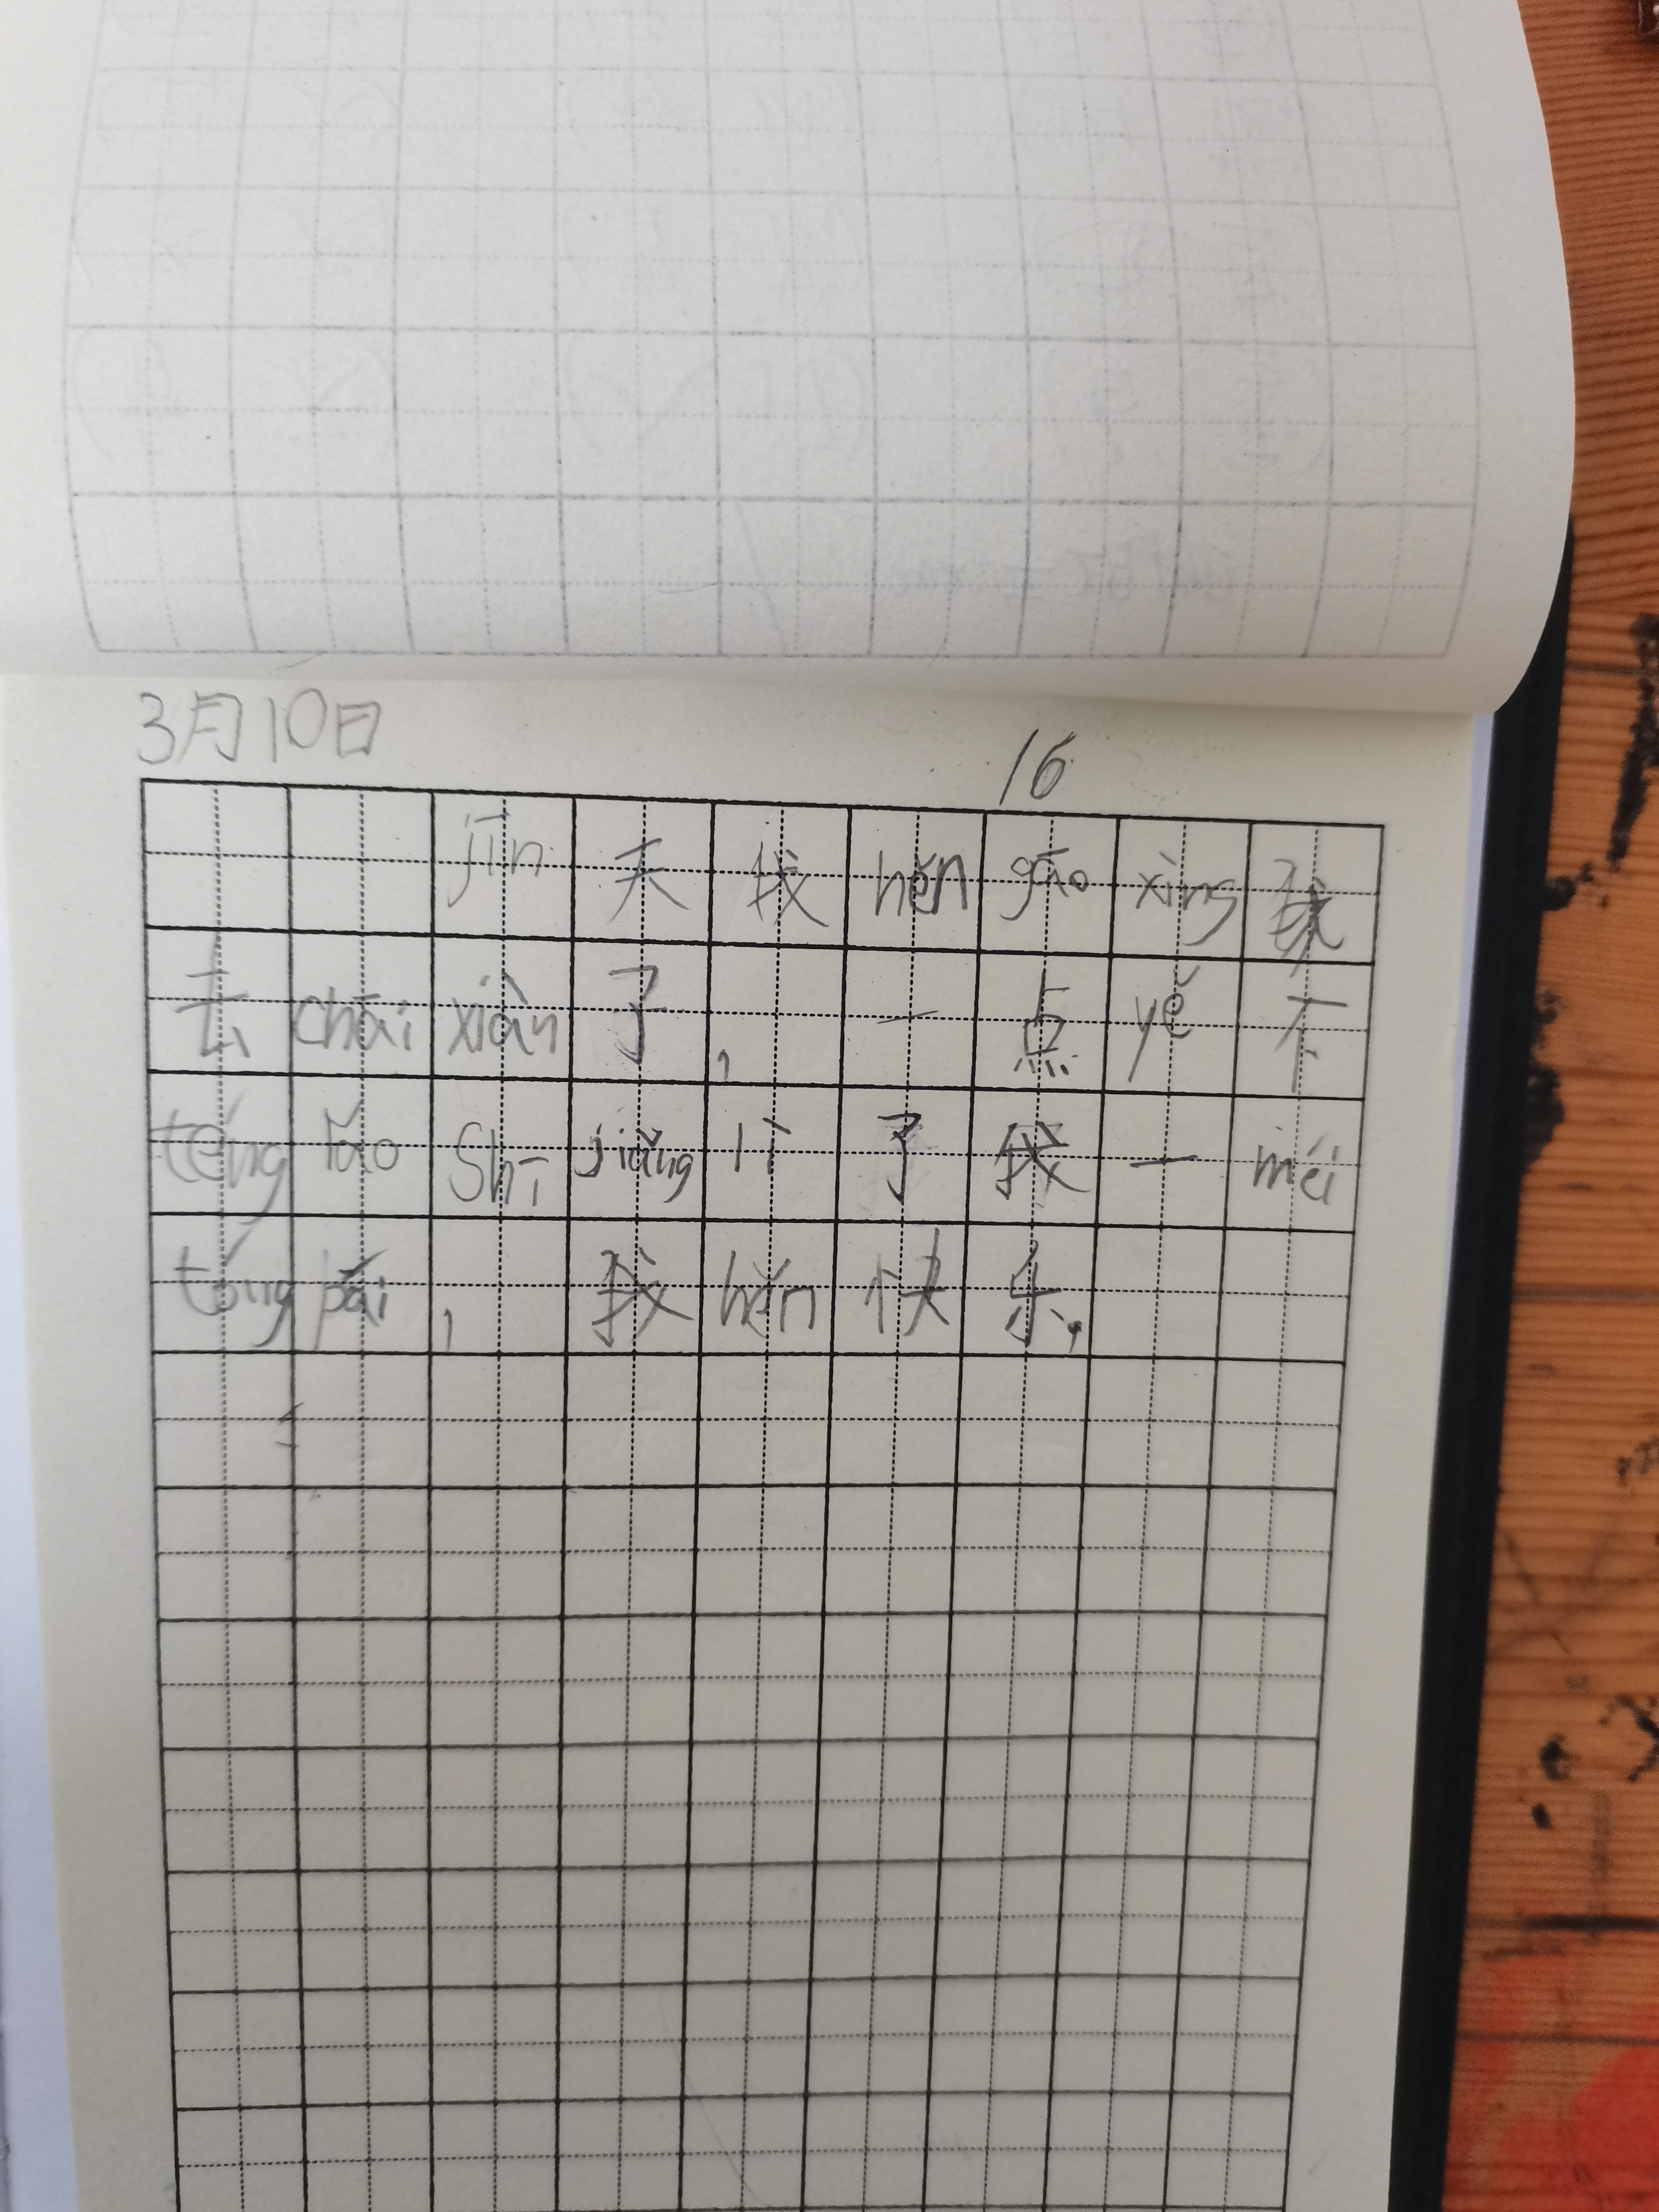 3月10日
16
jīn天我hěn gāo xìng我
去chāi xiàn了，一点yě不
téng lǎo Shī jiǎng lì了我一méi
tóng pái，我hěn快乐，